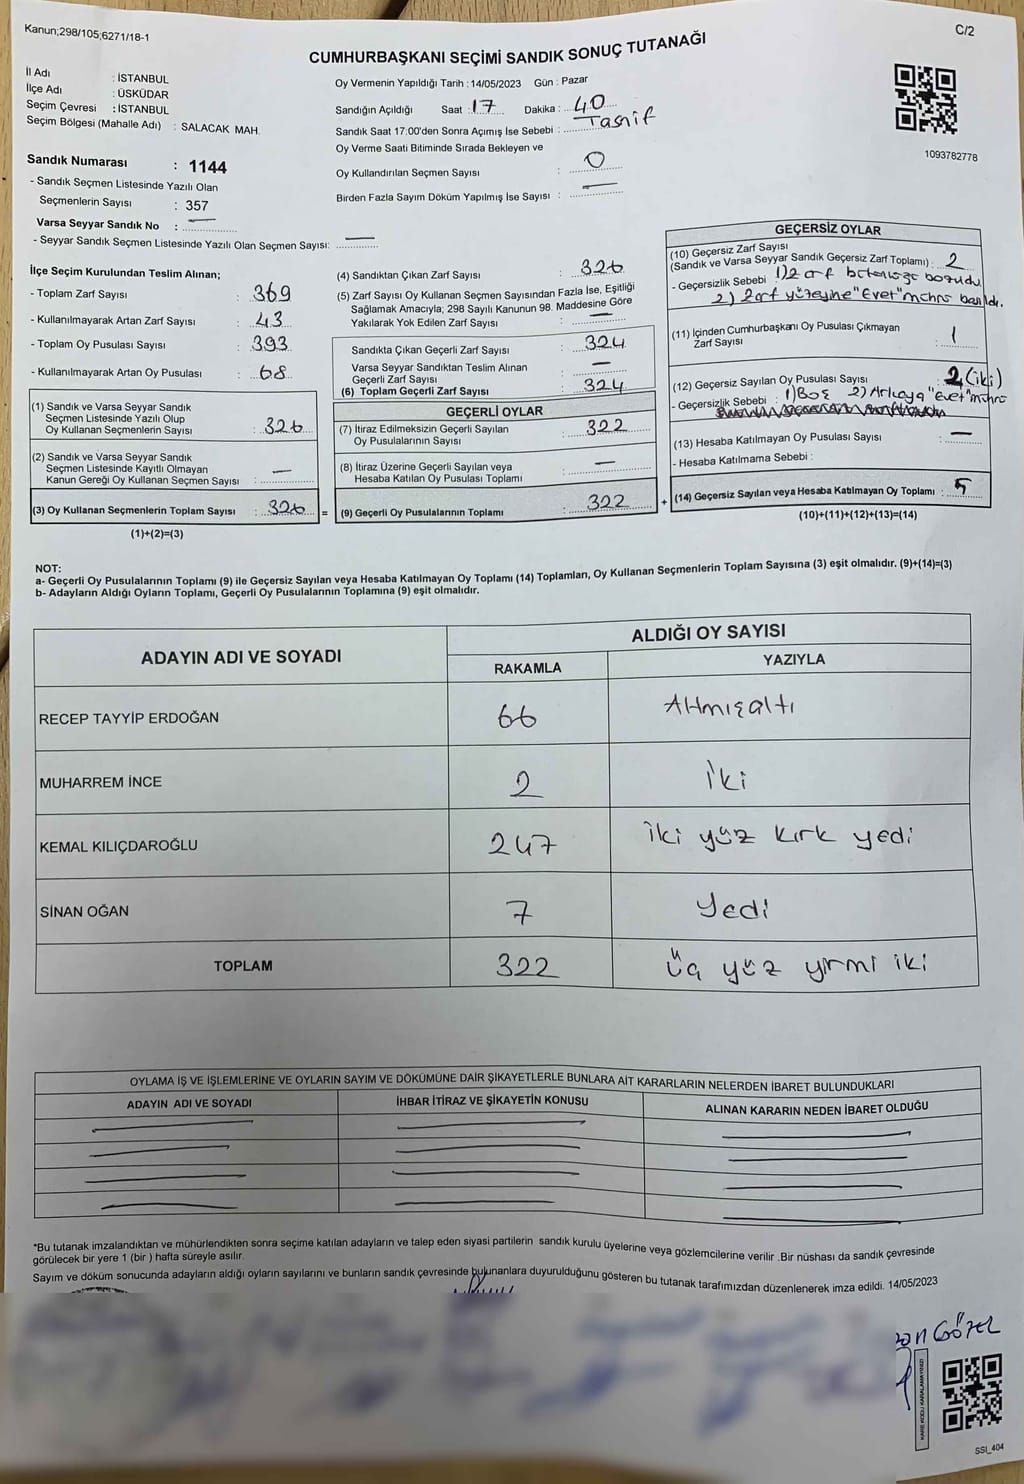 Kanun;298/105;6271/18-1
C/2
CUMHURBAŞKANI SEÇİMİ SANDIK SONUÇ TUTANAĞI
İl Adı : İSTANBUL
İlçe Adı : ÜSKÜDAR
Seçim Çevresi : İSTANBUL
Seçim Bölgesi (Mahalle Adı) : SALACAK MAH.
Oy Vermenin Yapıldığı Tarih : 14/05/2023 Gün : Pazar
Sandığın Açıldığı Saat : 17 Dakika : 40
Sandık Saat 17:00'den Sonra Açımış İse Sebebi : Tasnif
Oy Verme Saati Bitiminde Sırada Bekleyen ve
Oy Kullandırılan Seçmen Sayısı : 0
Birden Fazla Sayım Döküm Yapılmış İse Sayısı : —
1093782778
Sandık Numarası : 1144
- Sandık Seçmen Listesinde Yazılı Olan
Seçmenlerin Sayısı : 357
Varsa Seyyar Sandık No : —
- Seyyar Sandık Seçmen Listesinde Yazılı Olan Seçmen Sayısı: —
İlçe Seçim Kurulundan Teslim Alınan;
- Toplam Zarf Sayısı : 369
- Kullanılmayarak Artan Zarf Sayısı : 43
- Toplam Oy Pusulası Sayısı : 393
- Kullanılmayarak Artan Oy Pusulası : 68
(1) Sandık ve Varsa Seyyar Sandık
Seçmen Listesinde Yazılı Olup
Oy Kullanan Seçmenlerin Sayısı : 326
(2) Sandık ve Varsa Seyyar Sandık
Seçmen Listesinde Kayıtlı Olmayan
Kanun Gereği Oy Kullanan Seçmen Sayısı : —
(3) Oy Kullanan Seçmenlerin Toplam Sayısı : 326 =
(1)+(2)=(3)
(4) Sandıktan Çıkan Zarf Sayısı : 326
(5) Zarf Sayısı Oy Kullanan Seçmen Sayısından Fazla İse, Eşitliği
Sağlamak Amacıyla; 298 Sayılı Kanunun 98. Maddesine Göre
Yakılarak Yok Edilen Zarf Sayısı : —
Sandıkta Çıkan Geçerli Zarf Sayısı : 324
Varsa Seyyar Sandıktan Teslim Alınan
Geçerli Zarf Sayısı : —
(6) Toplam Geçerli Zarf Sayısı : 324
GEÇERLİ OYLAR
(7) İtiraz Edilmeksizin Geçerli Sayılan
Oy Pusulalarının Sayısı : 322
(8) İtiraz Üzerine Geçerli Sayılan veya
Hesaba Katılan Oy Pusulası Toplamı : —
(9) Geçerli Oy Pusulalarının Toplamı : 322 +
GEÇERSİZ OYLAR
(10) Geçersiz Zarf Sayısı
(Sandık ve Varsa Seyyar Sandık Geçersiz Zarf Toplamı) : 2
- Geçersizlik Sebebi : 1) Zarf bütünlüğü bozuldu
2) Zarf yüzeyine "Evet" mührü basıldı.
(11) İçinden Cumhurbaşkanı Oy Pusulası Çıkmayan
Zarf Sayısı : 1
(12) Geçersiz Sayılan Oy Pusulası Sayısı : 2 (iki)
- Geçersizlik Sebebi : 1) Boş 2) Arkaya "Evet" mührü
(13) Hesaba Katılmayan Oy Pusulası Sayısı : —
- Hesaba Katılmama Sebebi :
(14) Geçersiz Sayılan veya Hesaba Katılmayan Oy Toplamı : 5
(10)+(11)+(12)+(13)=(14)
NOT:
a- Geçerli Oy Pusulalarının Toplamı (9) ile Geçersiz Sayılan veya Hesaba Katılmayan Oy Toplamı (14) Toplamları, Oy Kullanan Seçmenlerin Toplam Sayısına (3) eşit olmalıdır. (9)+(14)=(3)
b- Adayların Aldığı Oyların Toplamı, Geçerli Oy Pusulalarının Toplamına (9) eşit olmalıdır.
ADAYIN ADI VE SOYADI
ALDIĞI OY SAYISI
RAKAMLA YAZIYLA
RECEP TAYYİP ERDOĞAN 66 Altmışaltı
MUHARREM İNCE 2 İki
KEMAL KILIÇDAROĞLU 247 İki yüz kırk yedi
SİNAN OĞAN 7 Yedi
TOPLAM 322 Üç yüz yirmi iki
OYLAMA İŞ VE İŞLEMLERİNE VE OYLARIN SAYIM VE DÖKÜMÜNE DAİR ŞİKAYETLERLE BUNLARA AİT KARARLARIN NELERDEN İBARET BULUNDUKLARI
ADAYIN ADI VE SOYADI İHBAR İTİRAZ VE ŞİKAYETİN KONUSU ALINAN KARARIN NEDEN İBARET OLDUĞU
*Bu tutanak imzalandıktan ve mühürlendikten sonra seçime katılan adayların ve talep eden siyasi partilerin sandık kurulu üyelerine veya gözlemcilerine verilir .Bir nüshası da sandık çevresinde
görülecek bir yere 1 (bir ) hafta süreyle asılır.
Sayım ve döküm sonucunda adayların aldığı oyların sayılarını ve bunların sandık çevresinde bulunanlara duyurulduğunu gösteren bu tutanak tarafımızdan düzenlenerek imza edildi. 14/05/2023
GÖZEL
KARE KODU KARALAMAYINIZ!
SSI_404